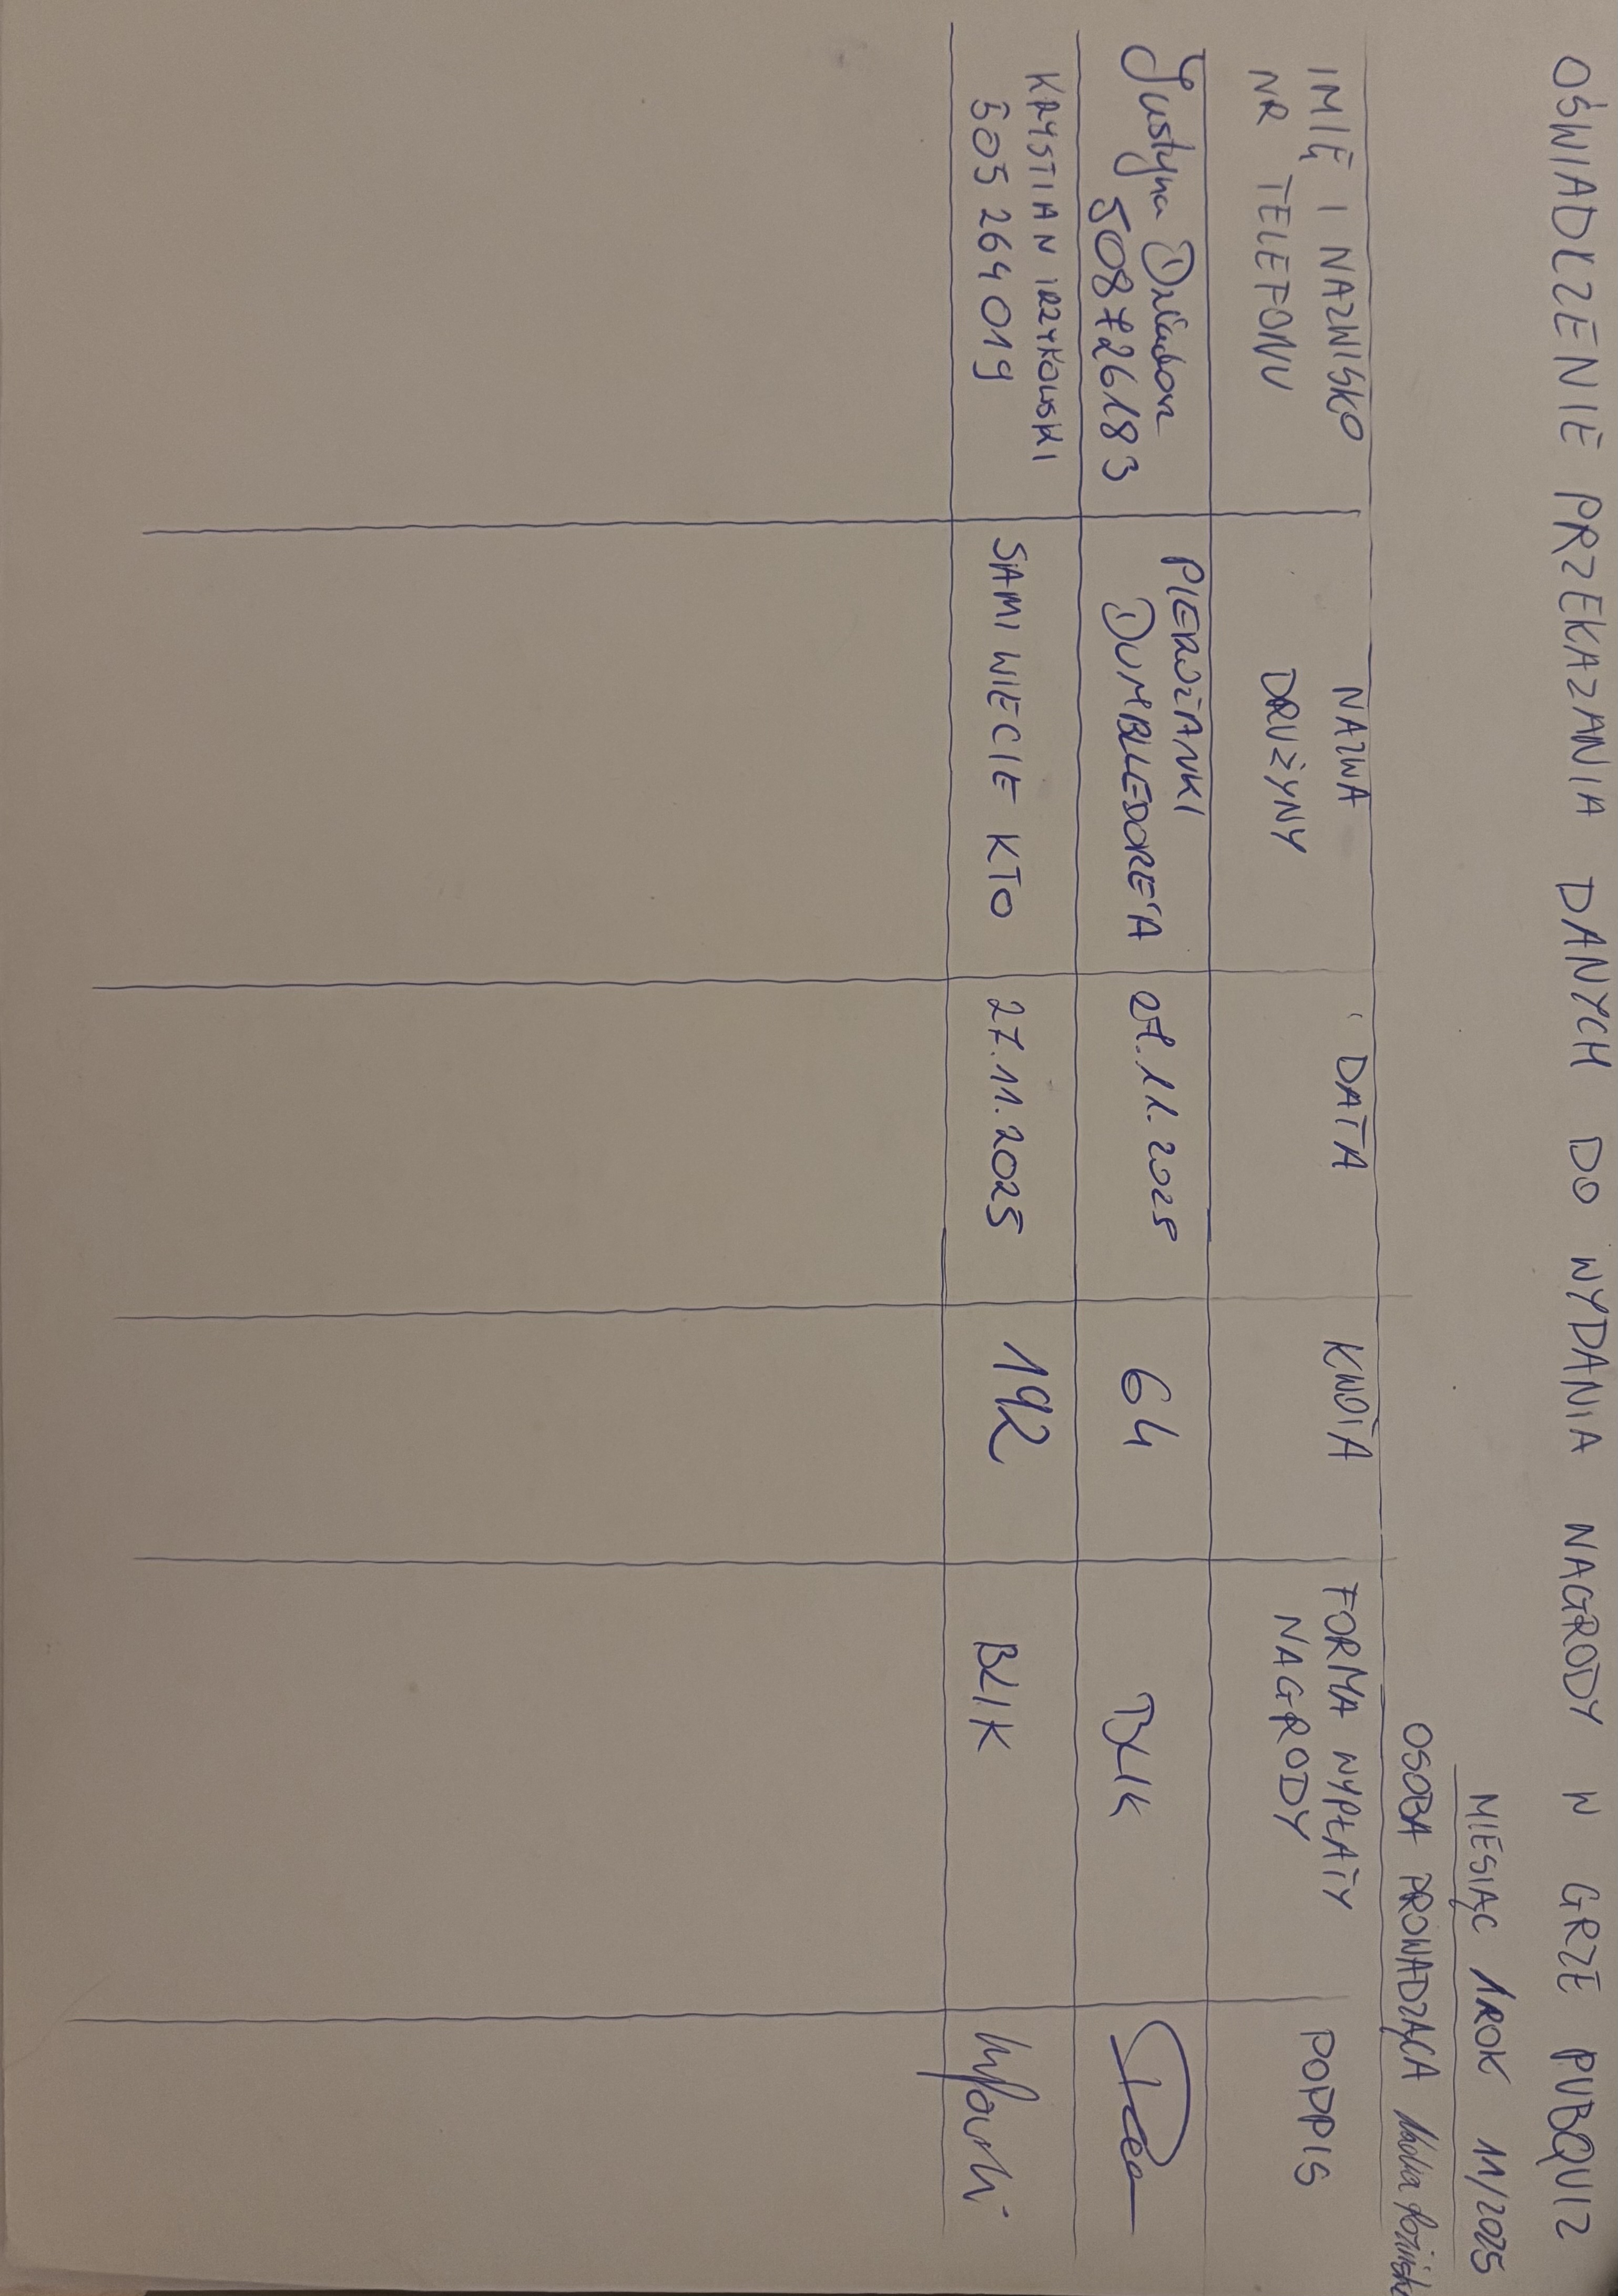 OŚWIADCZENIE PRZEKAZANIA DANYCH DO WYDANIA NAGRODY W GRZE PUBQUIZ
MIESIĄC I ROK 11/2025
OSOBA PROWADZĄCA
IMIĘ I NAZWISKO
NR TELEFONU
NAZWA
DRUŻYNY
DATA
KWOTA
FORMA WYPŁATY
NAGRODY
PODPIS
Justyna
508726183
PIERWIZANKI
DUMBLEDORE'A
27.11.2025
64
BLIK
KRYSTIAN IRZYKOWSKI
505 264 019
SAMI WIECIE KTO
27.11.2025
192
BLIK